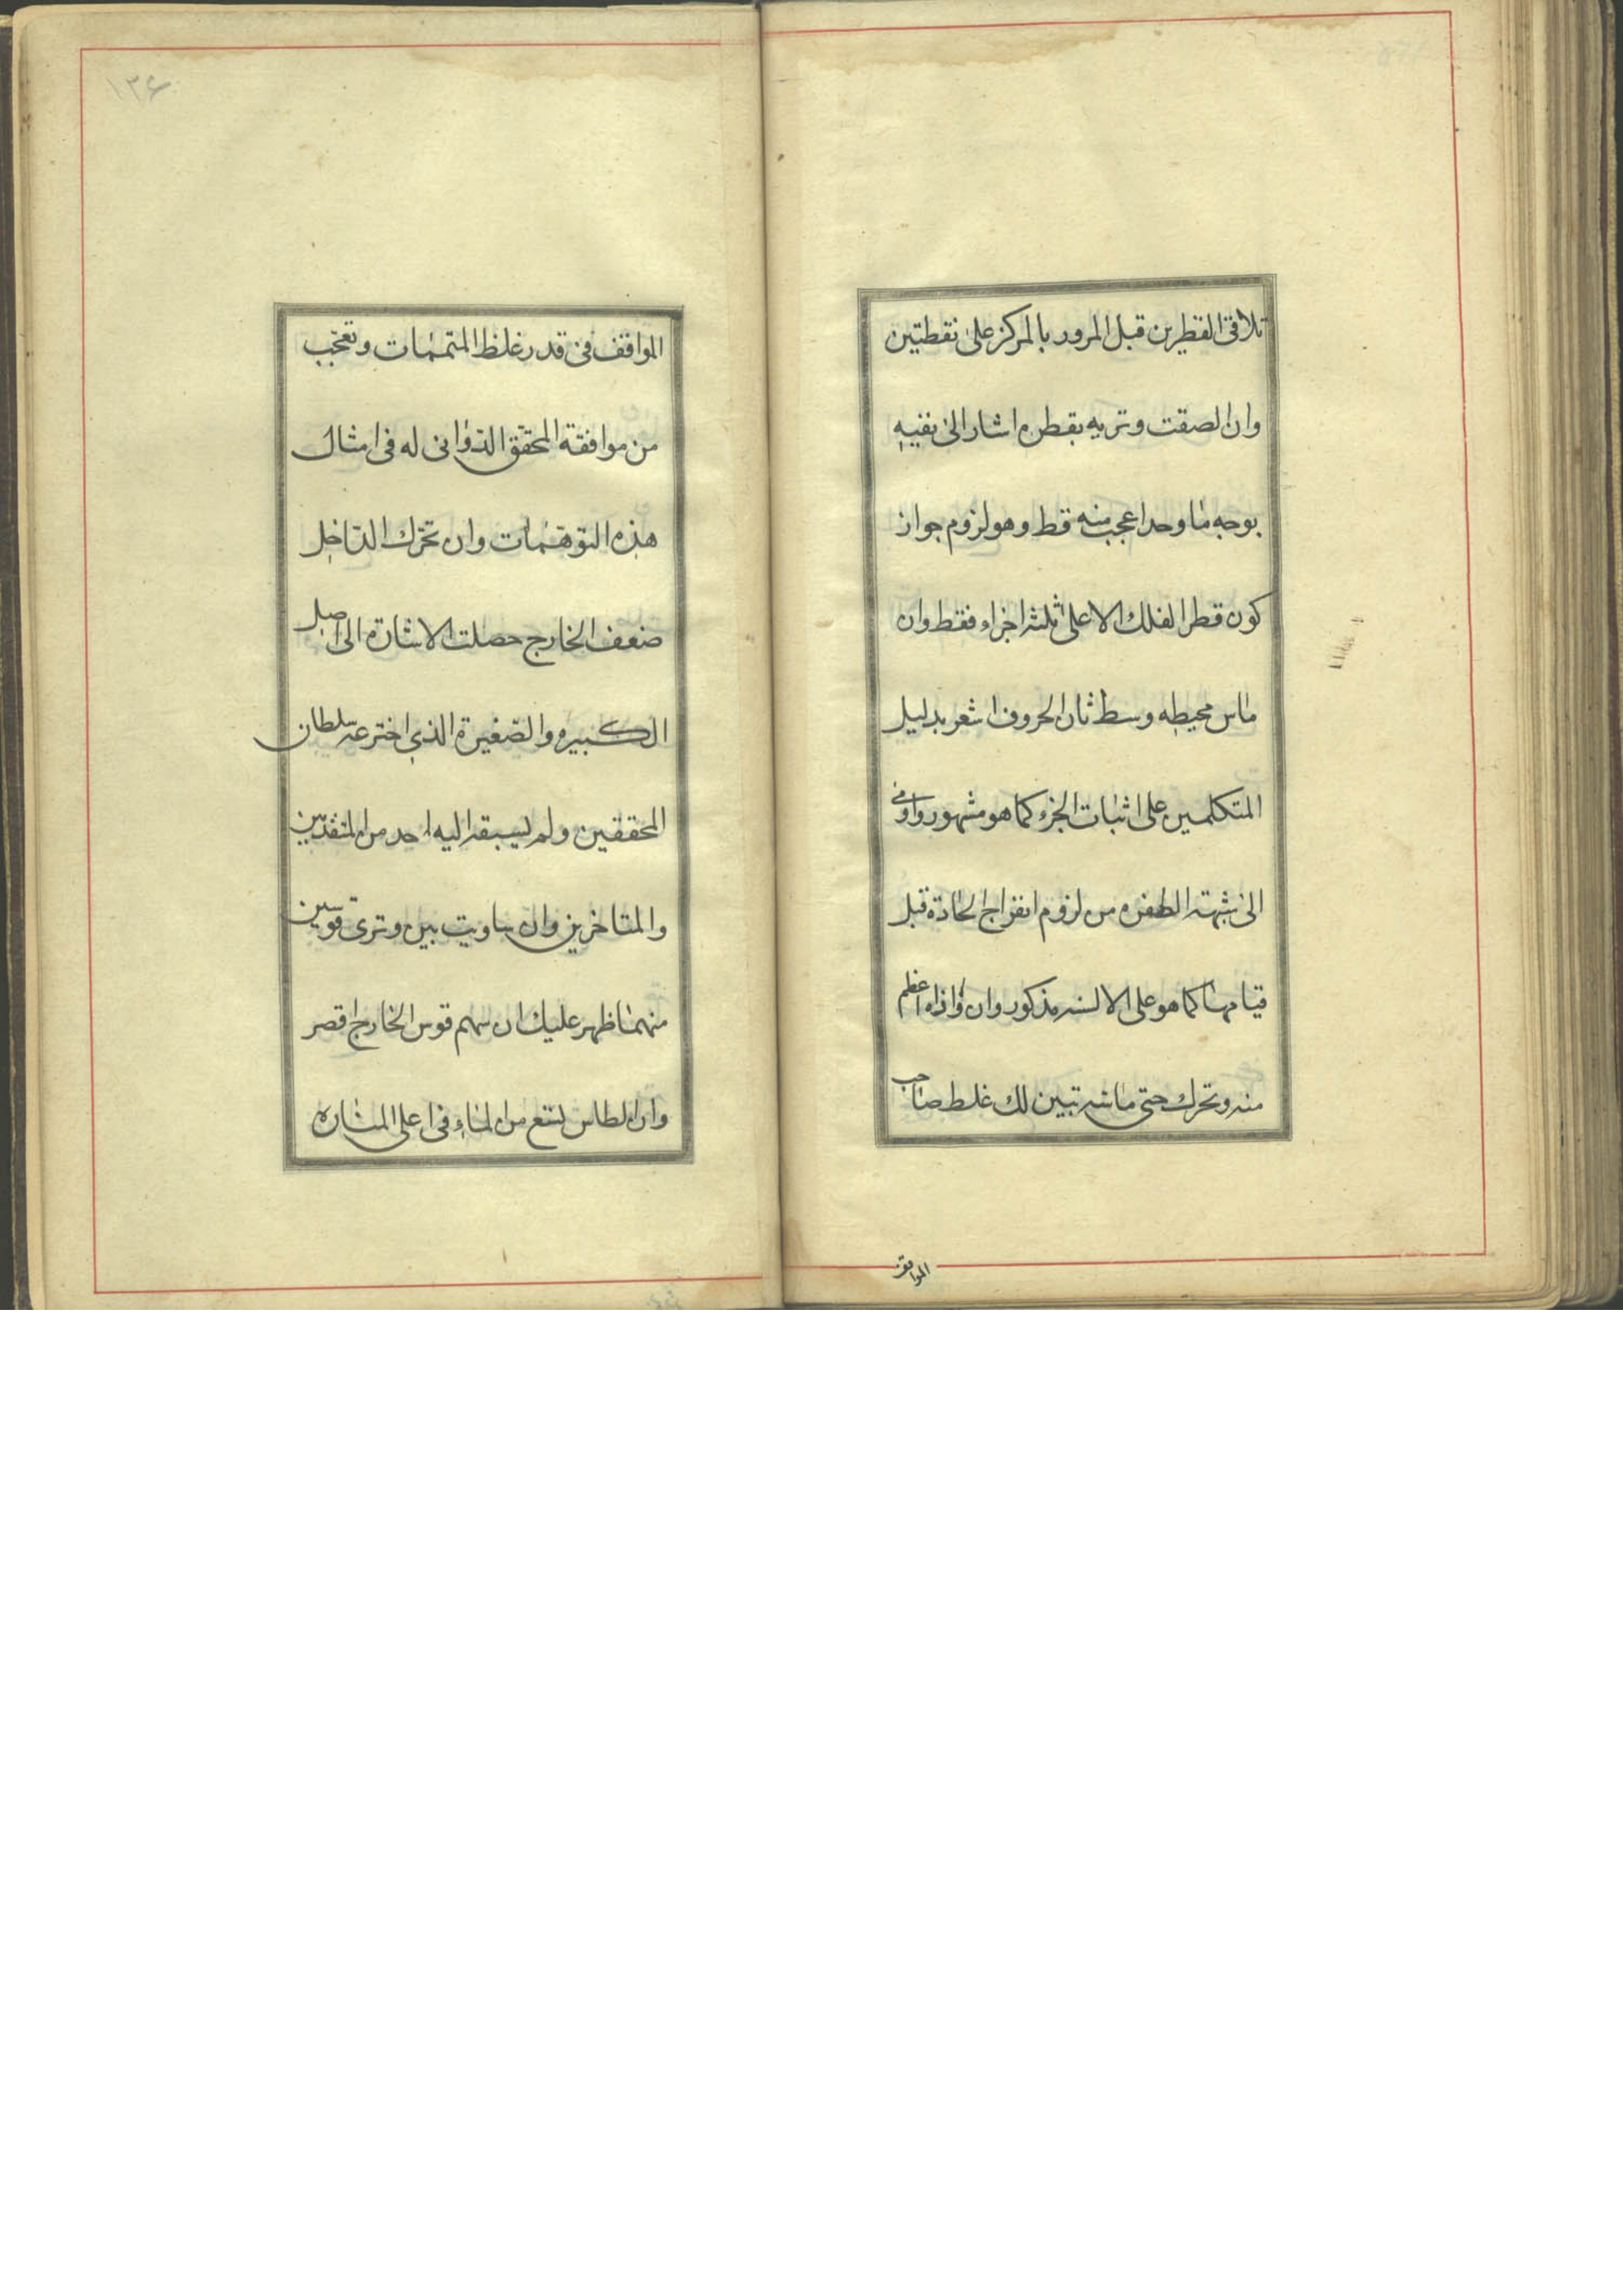 تلاقی القطرین قبل المرور بالمرکز علی نقطتین
وان الصقت وتریه بقطره اشار الی نفیه
بوجه ما وحد اعجب منه قط وهو لزوم جواز
کون قطر الفلک الاعلی ثلثه اجزاء فقط وان
ماس محیطه وسط ثان الحروف اشعر بدلیل
المتکلمین علی اثبات الجزء کما هو مشهور واومی
الی شبهته الطفره من لزوم انفراج الحادة قبل
قیامها کما هو علی الالسنه مذکور وان وازاه اعظم
منه وتحرک حتی ماسه تبین لک غلط صاحب
المواقف
۱۳۶
المواقف فی قدر غلظ المتممات وتعجب
من موافقة المحقق الدوانی له فی امثال
هذه التوهمات وان تحرک الداخل
ضعف الخارج حصلت الاشارة الی اصل
الکبیره والصغیرة الذی اخترعه سلطان
المحققین ولم یسبقه الیه احد من المتقدمین
والمتاخرین وان ساویت بین وتری قوسین
منهما ظهر علیک ان سهم قوس الخارج اقصر
وان الطاس یسع من الماء فی اعلی المناره